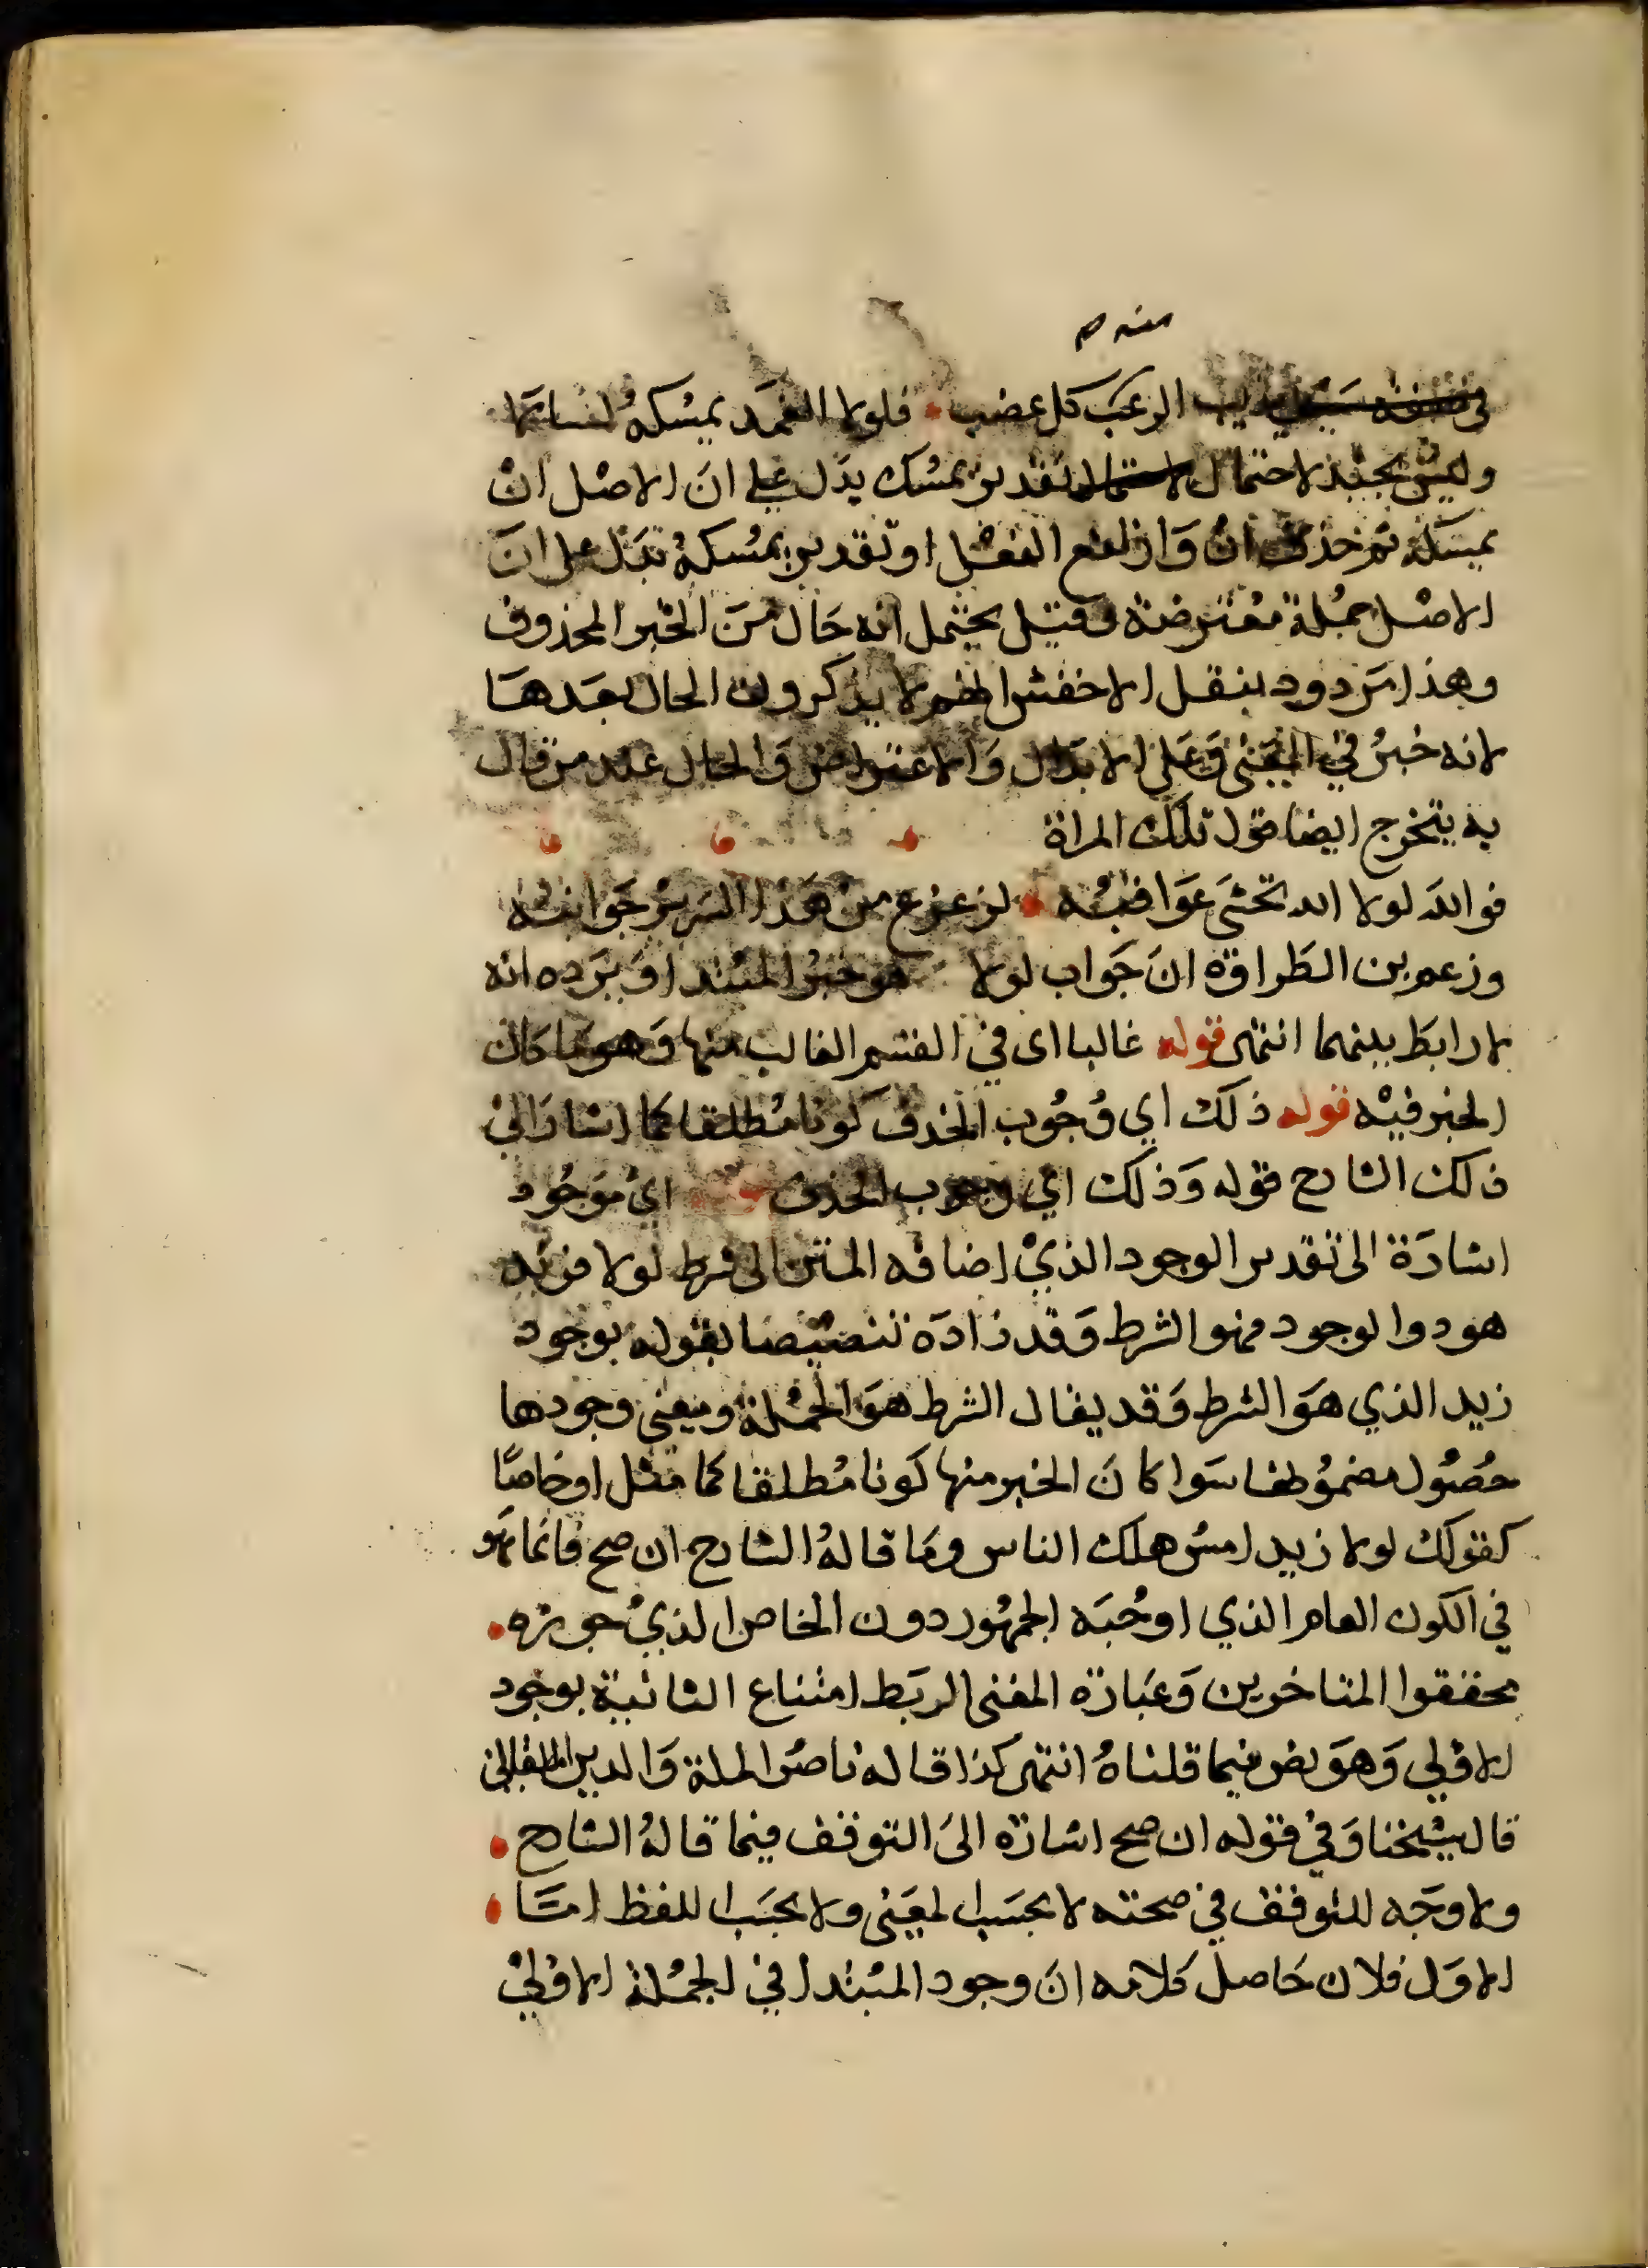 منه صح
في صفة سيف يذيب الرعب كل عضب فلولا الغمد يمسكه لسالا
وليس بجيد لاحتمال تقدير يمسك بدل على ان الاصل ان
يمسكه ثم حذف ان وارتفع الفعل او تقدير يمسكه تبدل على ان
الاصل جملة معترضة وقيل يحتمل انه حال من الخبر المحذوف
وهذا مردود بنقل الاخفش انهم لا يذكرون الحال بعدها
لانه خبر في المعنى وعلى الابدال والاعتراض والحال عند من قال
به يتخرج ايضا قول تلك المراة
فوالله لولا الله تخشى عواقبه لزعزع من هذا السرير جوانبه
وزعم بن الطراوة ان جواب لولا هو خبر المبتدا ويرده انه
لا رابط بينهما انتهى قوله غالبا اى في القسم الغالب منها وهو ما كان
الخبر فيه قوله ذلك اي وجوب الحذف كونا مطلقا كما اشار الى
ذلك الشارح قوله وذلك اي وجوب الحذف قوله اي موجود
اشارة الى تقدير الوجود الذي اضافه المتن الى شرط لولا فزيد
هو ذوا لوجود فهو الشرط وقد زاده تنصيصا بقوله بوجود
زيد الذي هو الشرط وقد يقال الشرط هو الجملة ومعنى وجودها
حصول مضمونها سوا كان الخبر منها كونا مطلقا كما مثل او خاصا
كقولك لولا زيد امس هلك الناس وما قاله الشارح ان صح فانما هو
في الكون العام الذي اوجبه الجمهور دون الخاص الذي جوزه
محققوا المتاخرين وعبارة المغنى لربط امتناع الثانية بوجود
الاولي وهو نص فيما قلناه انتهى كذا قاله ناصر الملة والدين اللقاني
قال شيخنا وفي قوله ان صح اشارة الى التوقف فيما قاله الشارح
ولا وجه للتوقف في صحته لا بحسب المعنى ولا بحسب اللفظ امـا
الاول فلان حاصل كلامه ان وجود المبتدا في الجملة الاولي